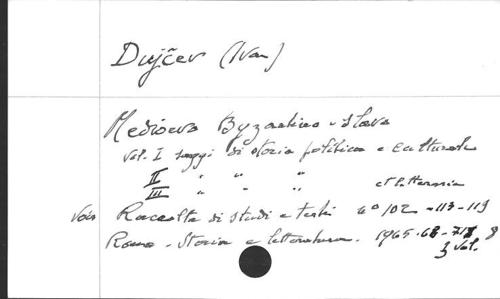 Dujčev (Ivan)
Medioevo Byzantino-slavo
Vol. I saggi di storia politica e culturale
II " " "
III " " " et letteraria
Voir Raccolta di studi e testi 4° 102 - 113 - 119
Roma - Storia e letteratura. 1965-68-71 8
3 vol.